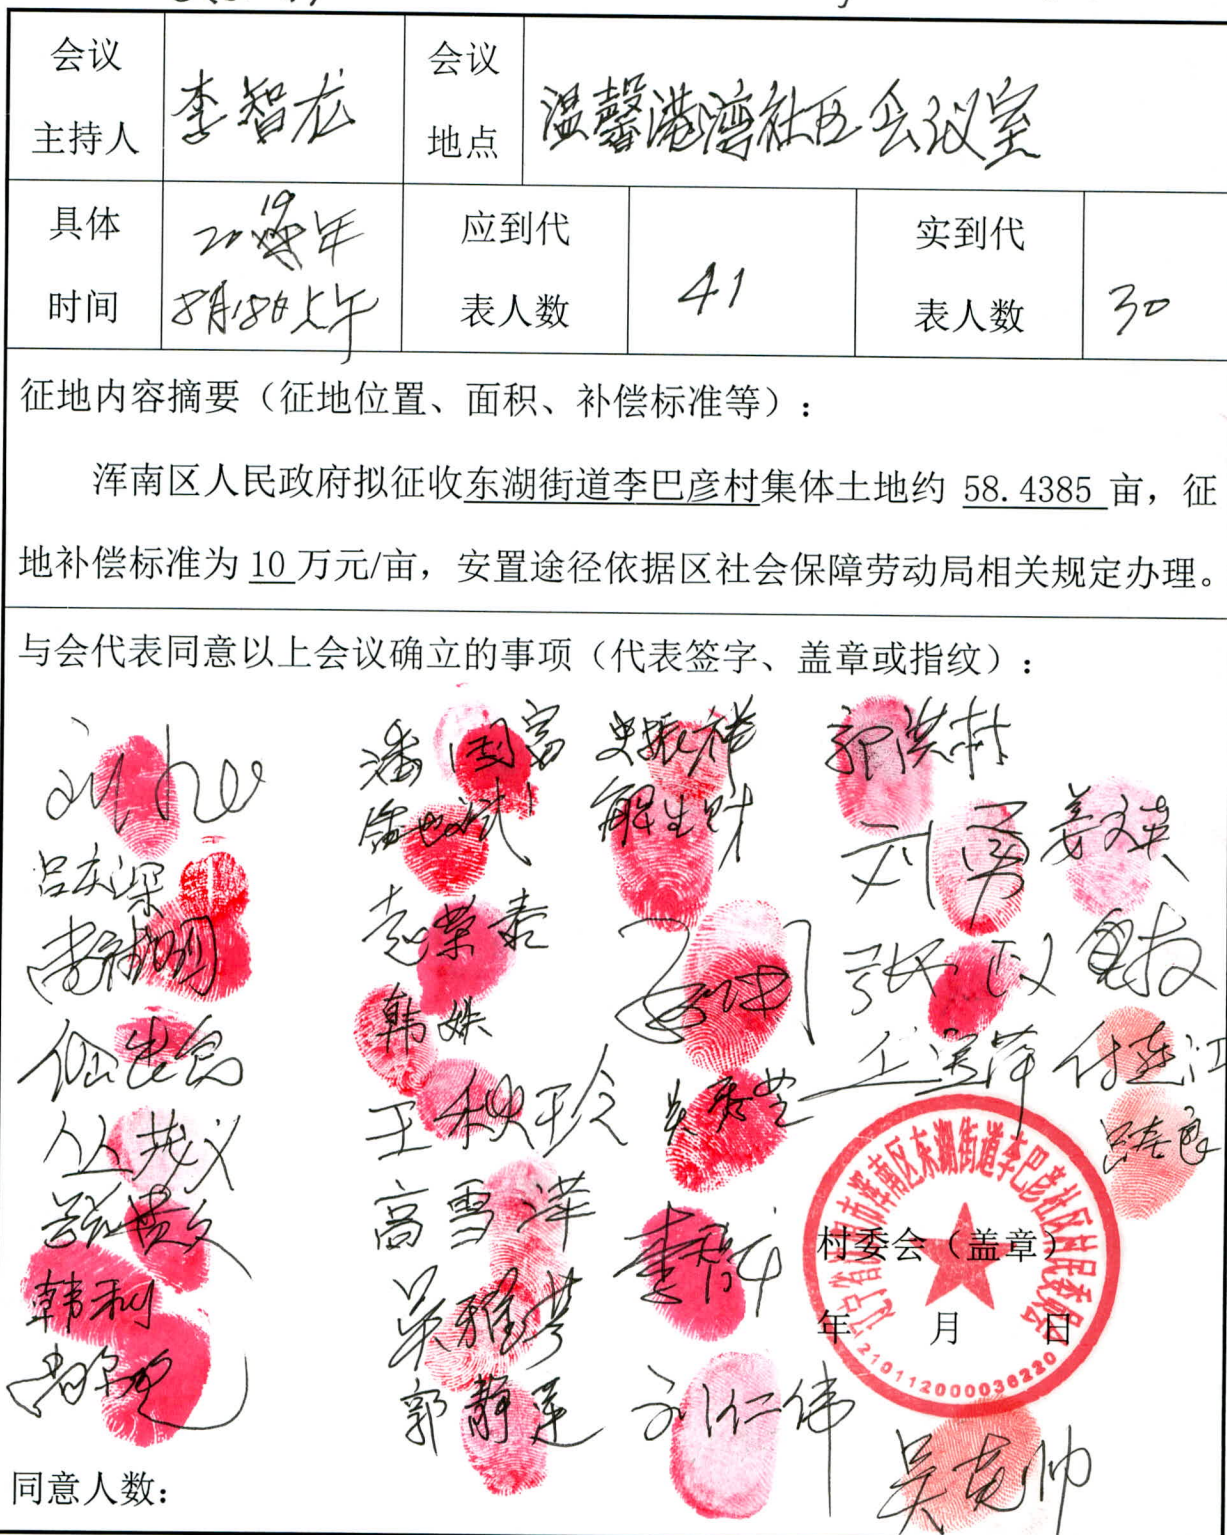 会议
主持人
李智龙
会议
地点
温馨港湾社区会议室
具体
时间
2019年
8月18日上午
应到代
表人数
41
实到代
表人数
30
征地内容摘要（征地位置、面积、补偿标准等）：
浑南区人民政府拟征收东湖街道李巴彦村集体土地约 58.4385 亩，征
地补偿标准为 10 万元/亩，安置途径依据区社会保障劳动局相关规定办理。
与会代表同意以上会议确立的事项（代表签字、盖章或指纹）：
潘国富
史振祥
郭洪村
解生财
刘勇
姜文英
吕庆深
张义
韩姝
付连江
王秋玲
丛茂义
高雪洋
韩利
吴雅芳
郭静莲
刘仁伟
吴克帅
辽宁省沈阳市浑南区东湖街道李巴彦社区村民委员会
210112000036220
村委会（盖章）
年 月 日
同意人数：